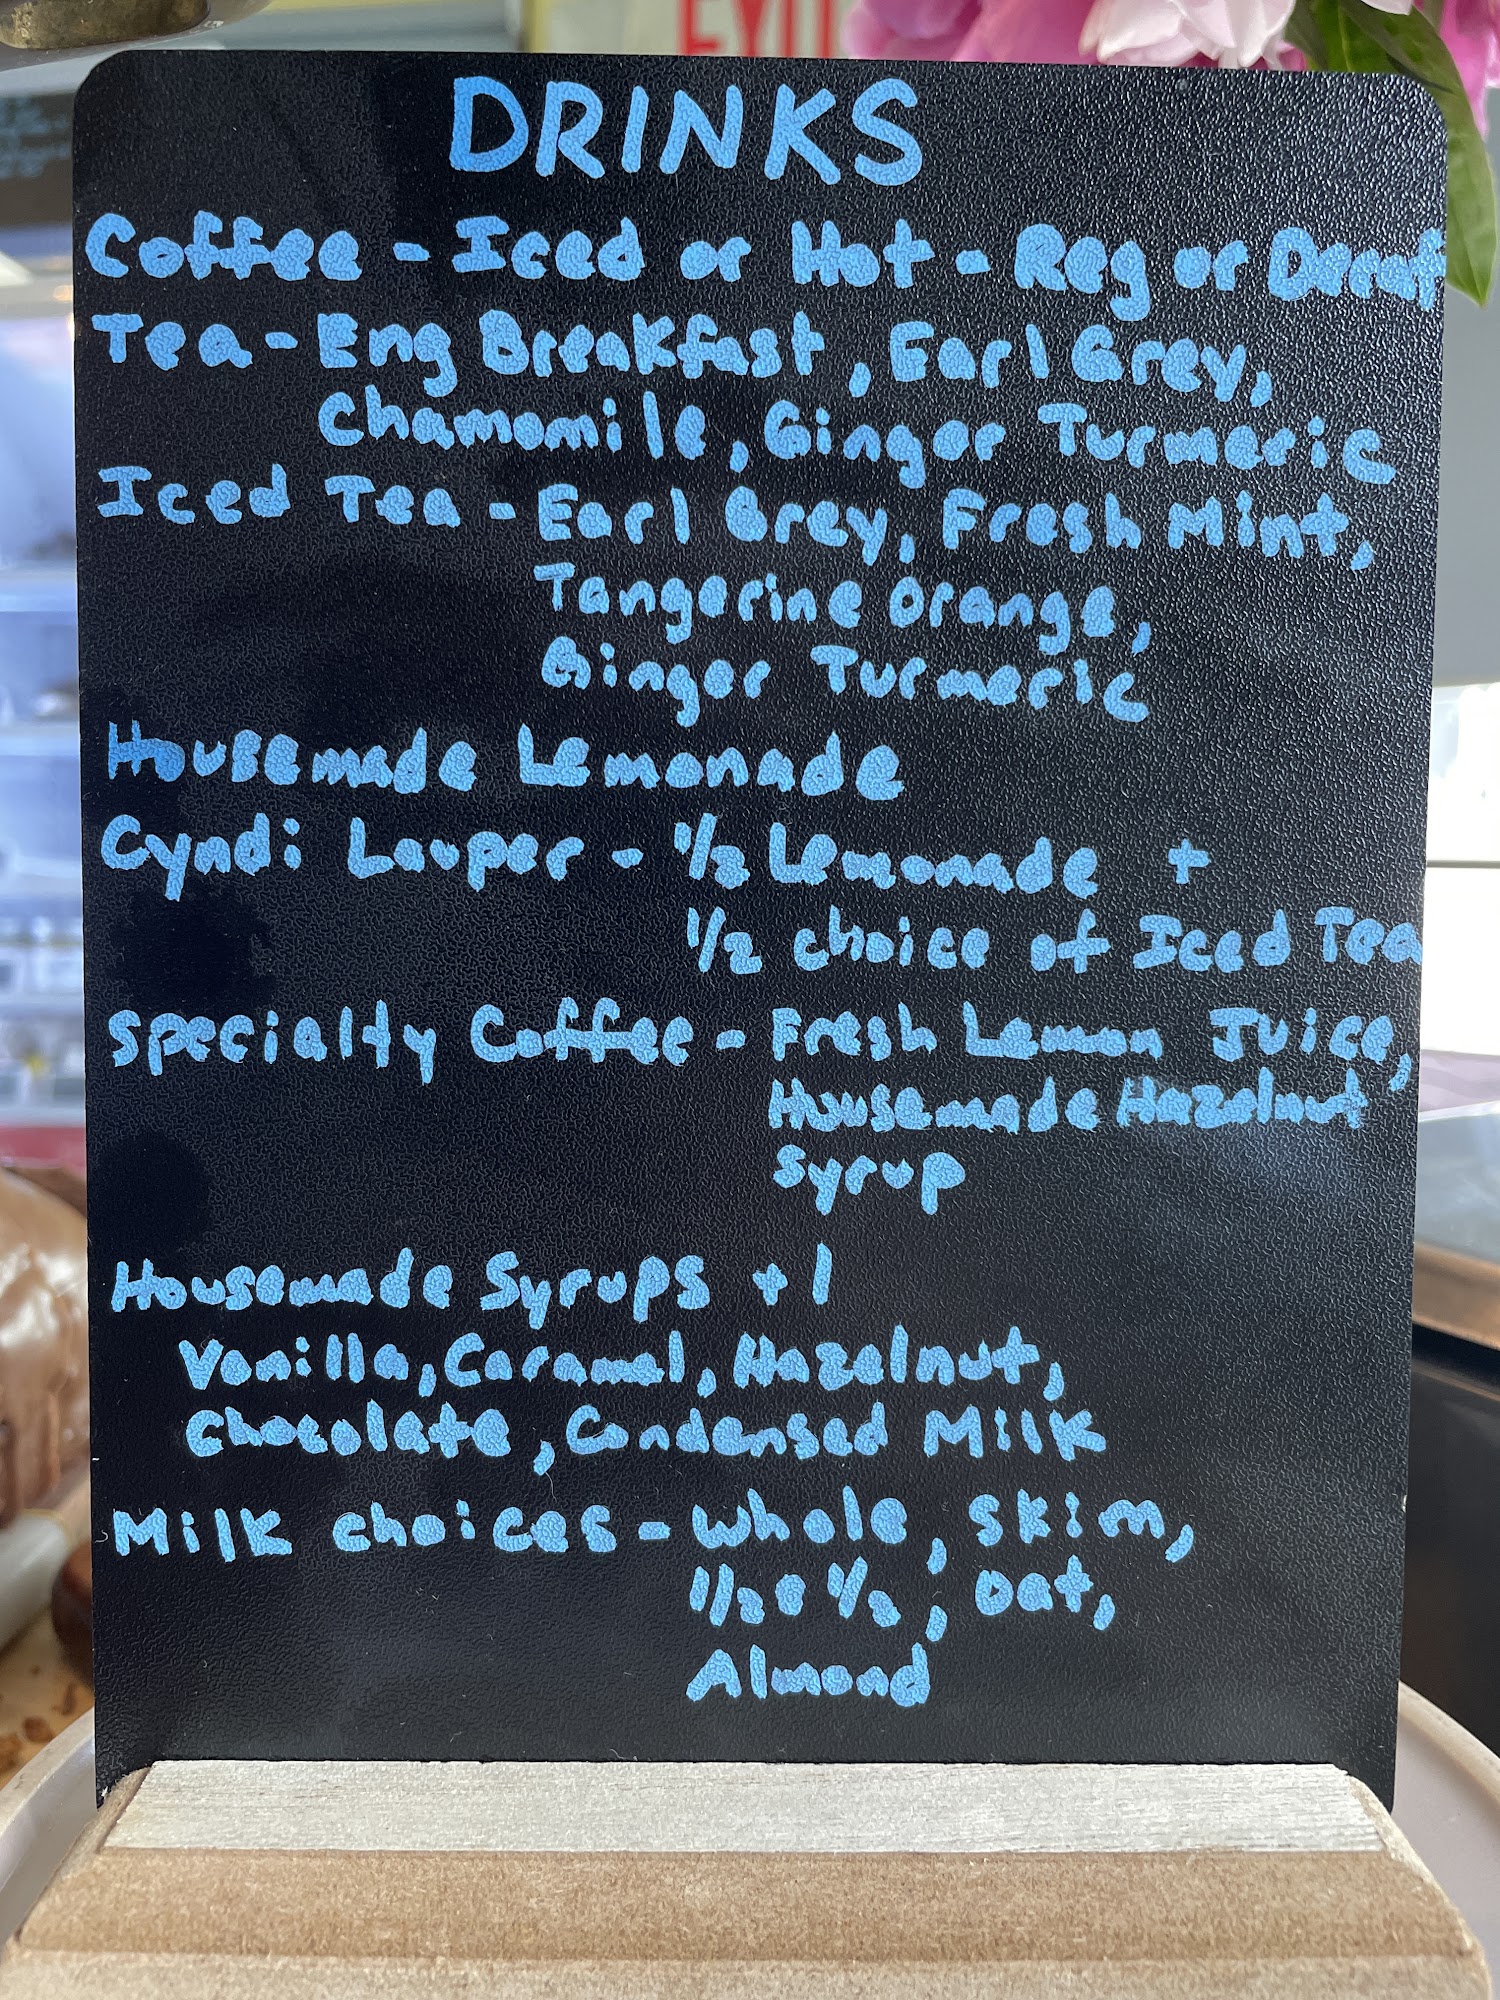 EXIT
DRINKS
Coffee - Iced or Hot - Reg or Decaf
Tea - Eng Breakfast, Earl Grey,
Chamomile, Ginger Turmeric
Iced Tea - Earl Grey, Fresh Mint,
Tangerine Orange,
Ginger Turmeric
Housemade Lemonade
Cyndi Lauper - 1/2 Lemonade +
1/2 choice of Iced Tea
Specialty Coffee - Fresh Lemon Juice,
Housemade Hazelnut
Syrup
Housemade Syrups +1
Vanilla, Caramel, Hazelnut,
Chocolate, Condensed Milk
Milk choices - Whole, Skim,
1/2 & 1/2, Oat,
Almond